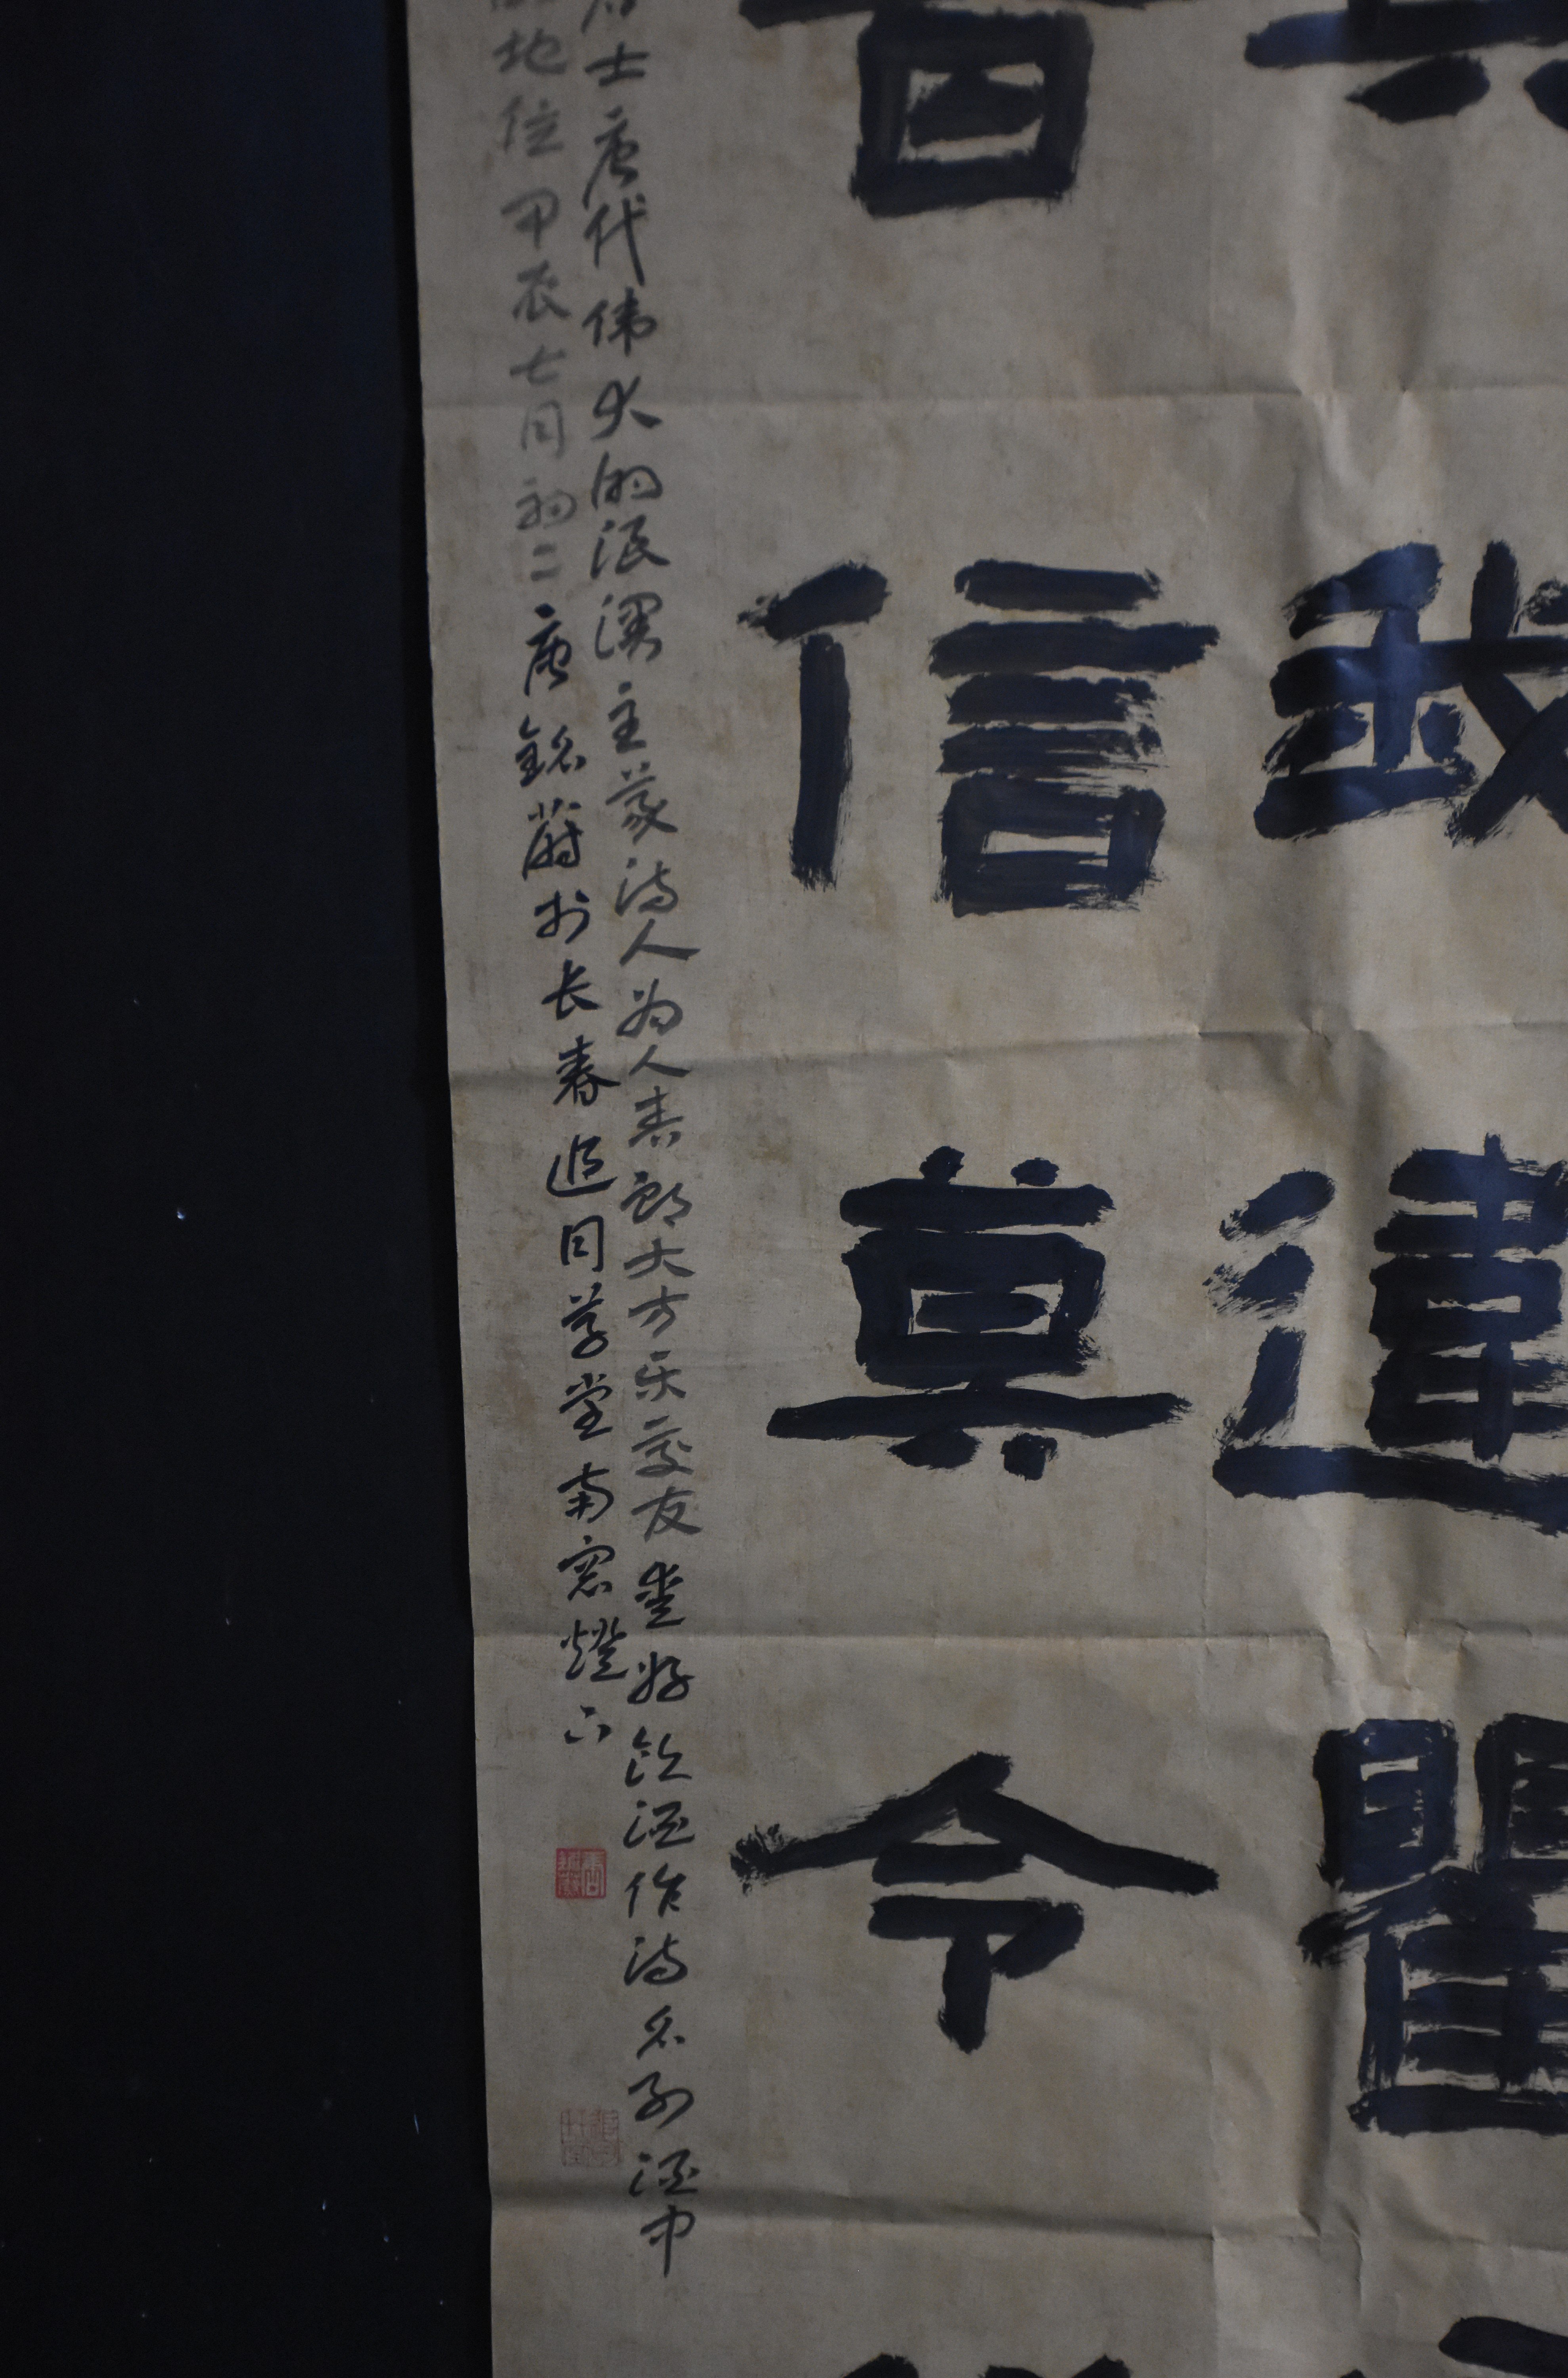 我違瞿
音信奠令
居士唐代伟大的浪漫主义诗人为人爽朗大方乐交友爱好饮酒作诗名列酒中
地位甲辰七月初二唐铭蔚于长春追月草堂南窗灯下